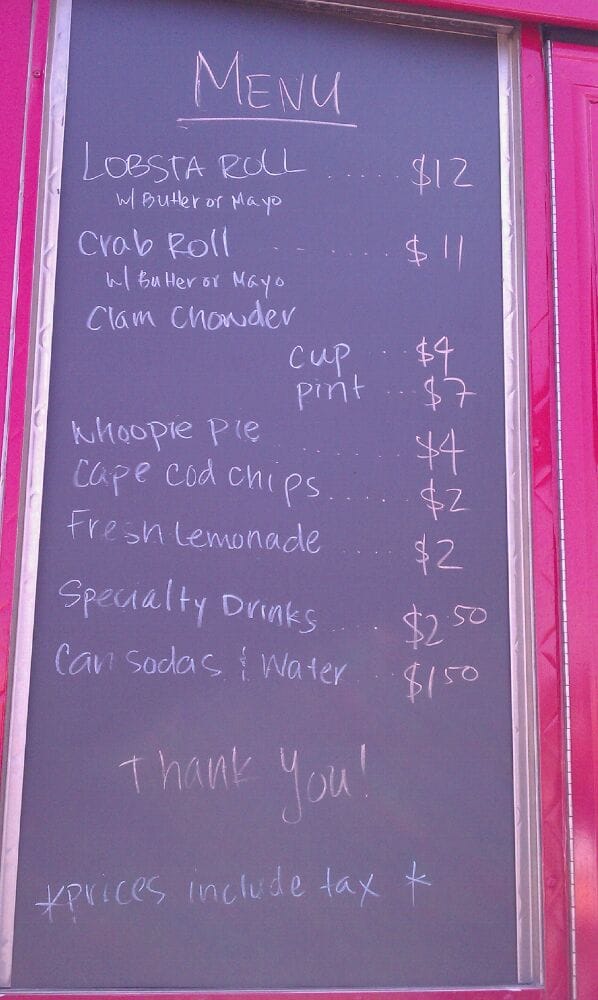 MENU
LOBSTA ROLL ..... $12
w/ Butter or Mayo
Crab Roll ...... $11
w/ Butter or Mayo
Clam Chowder
cup ... $4
pint ... $7
Whoopie Pie ...... $4
Cape Cod Chips ..... $2
Fresh Lemonade ..... $2
Specialty Drinks .... $2 50
Can Sodas & Water .... $1 50
Thank You!
*prices include tax *